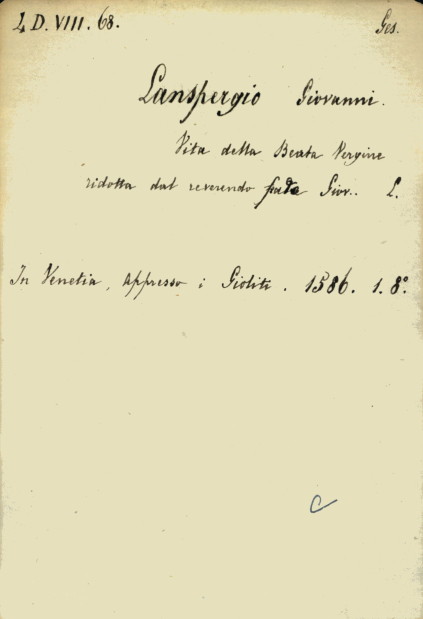 4 D. VIII. 68. Ges.
Lanspergio Giovanni.
Vita della Beata Vergine
ridotta dal reverendo frate Giov.. L.
In Venetia, appresso i Gioliti. 1586. 1. 8°.
C